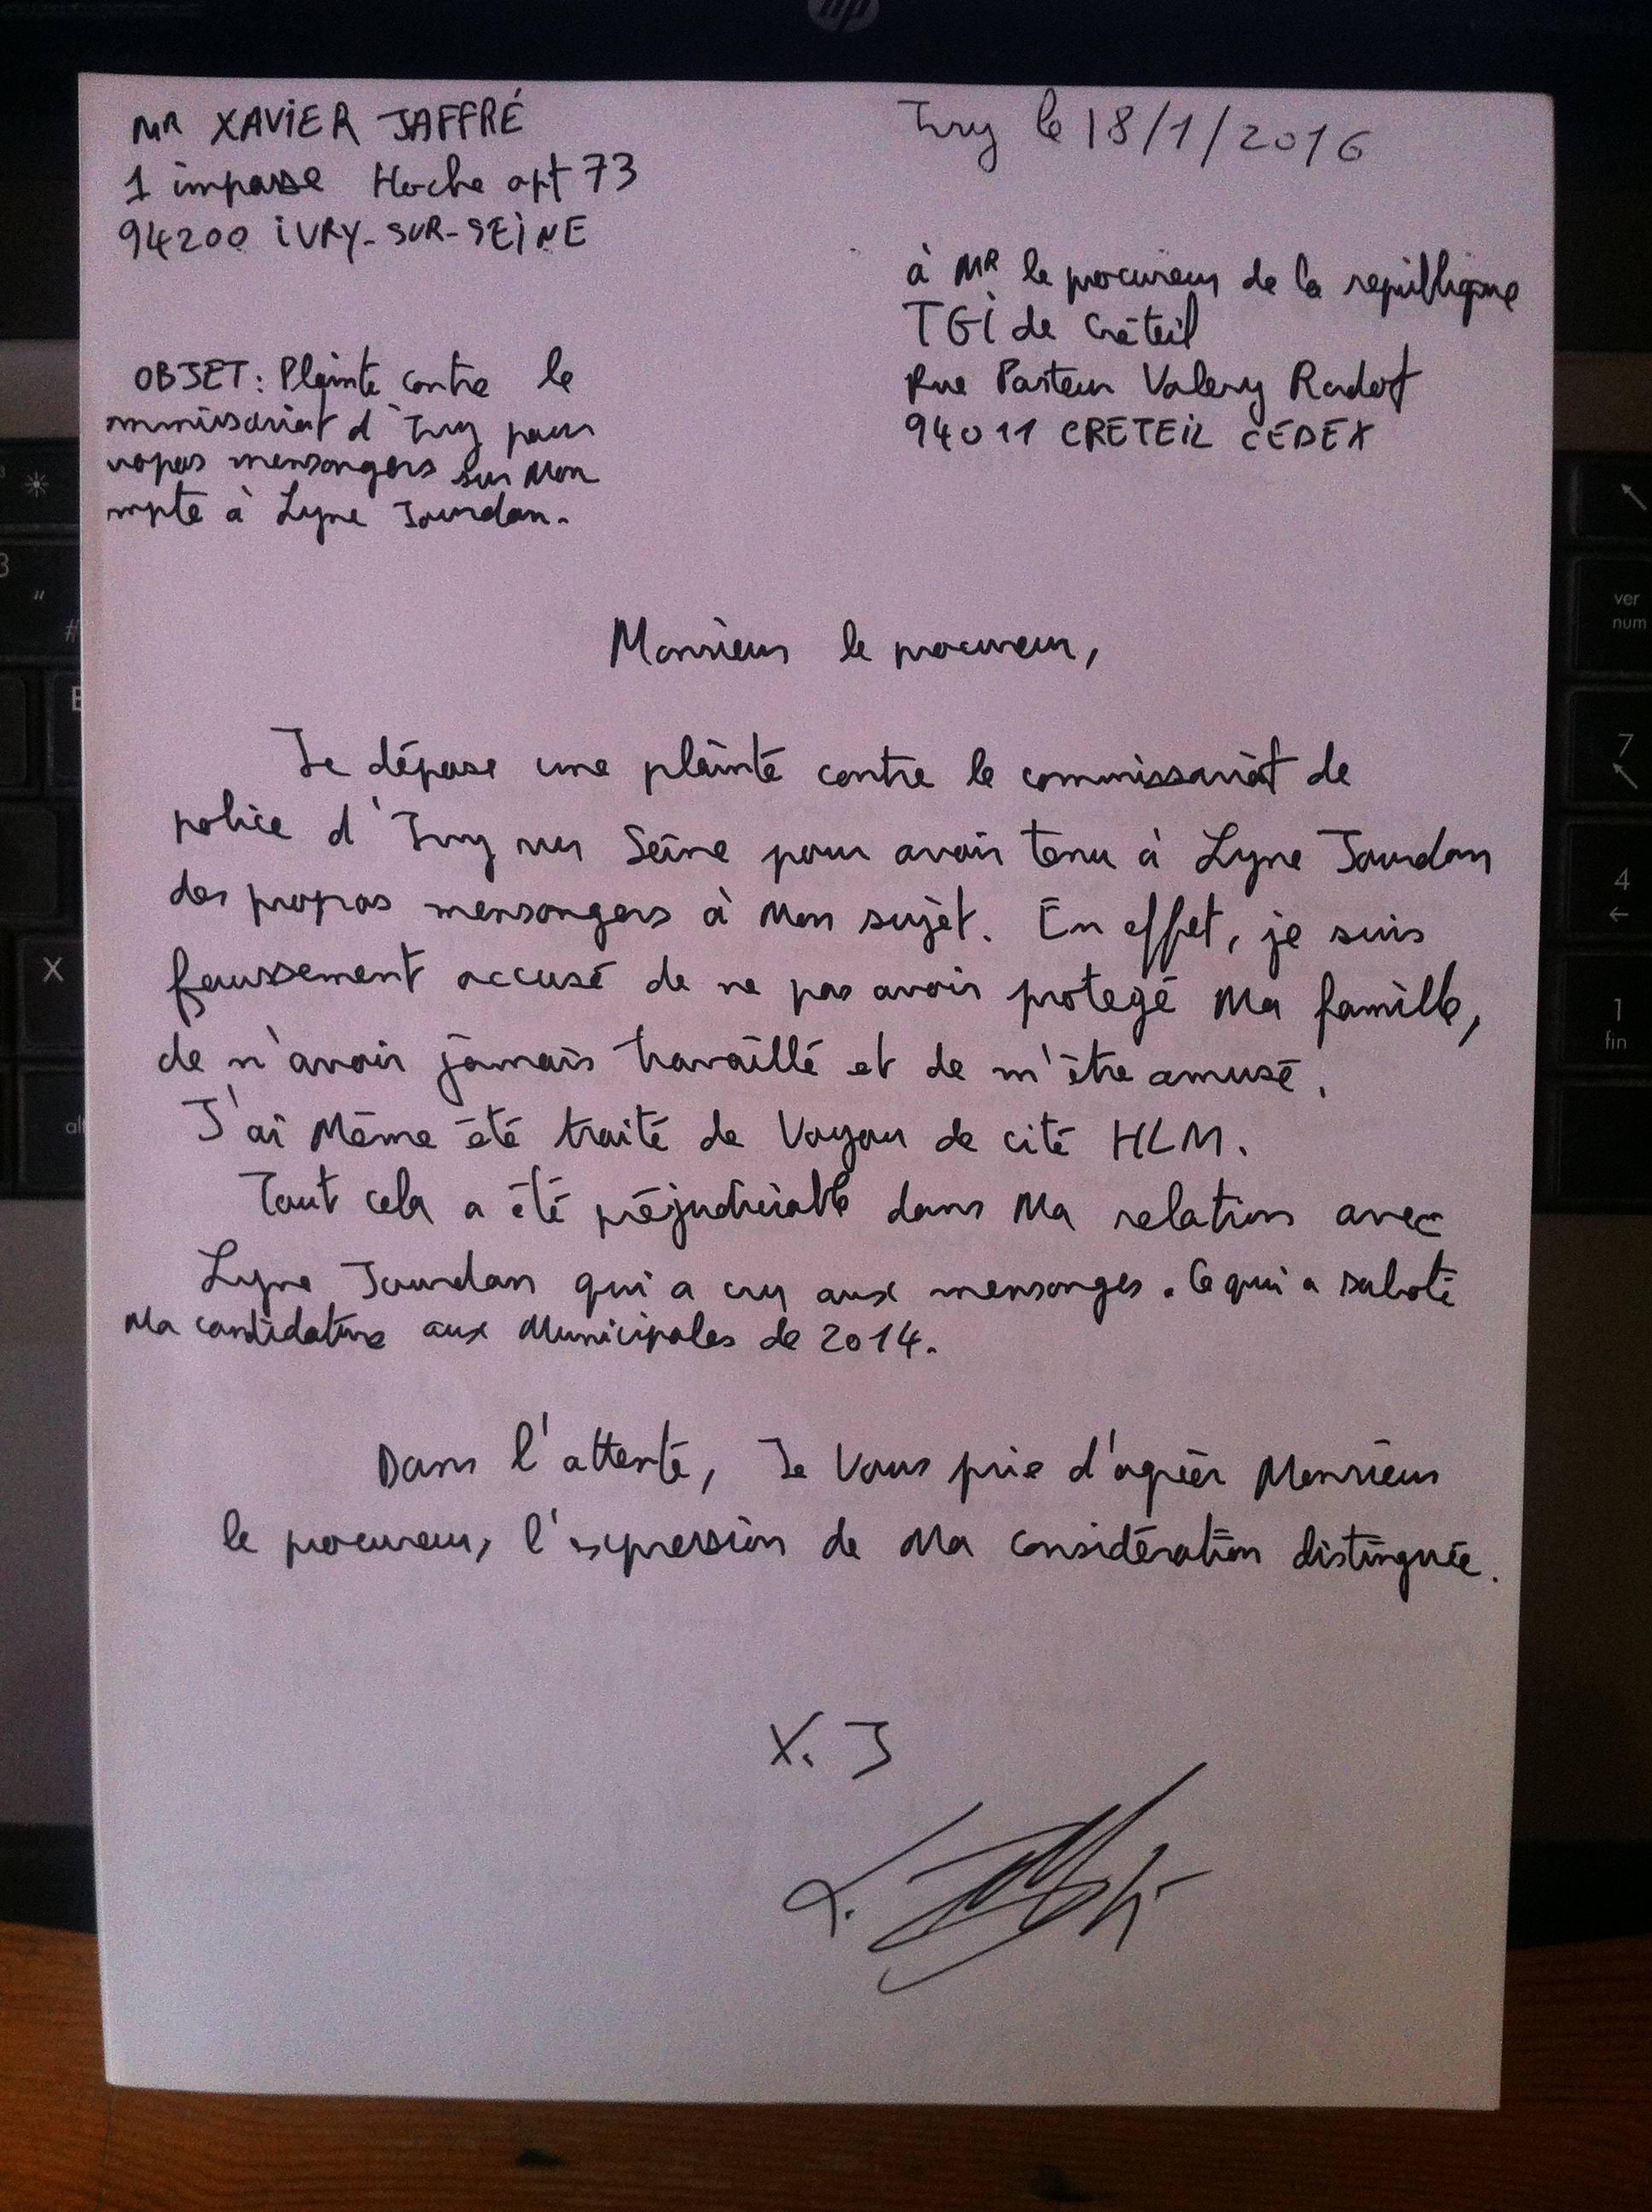 hp
MR XAVIER JAFFRÉ
1 impasse Hoche apt 73
94200 IVRY-SUR-SEINE
Ivry le 18/1/2016
à MR le procureur de la republique
TGI de Créteil
Rue Pasteur Valery Radot
94011 CRETEIL CEDEX
OBJET: Plainte contre le
mmissariat d'Ivry pour
ropos mensongers sur Mon
mpte à Lyne Jourdan.
Monsieur le procureur,
Je dépose une plainte contre le commissariat de
police d'Ivry sur Seine pour avoir tenu à Lyne Jourdan
des propos mensongers à Mon sujet. En effet, je suis
faussement accusé de ne pas avoir protegé Ma famille,
de n'avoir jamais travaillé et de m'être amusé.
J'ai Même été traité de Voyou de cité HLM.
Tout cela a été préjudiciable dans Ma relation avec
Lyne Jourdan qui a cru aux mensonges. Ce qui a saboté
Ma candidature aux Municipales de 2014.
Dans l'attente, Je Vous prie d'agréer Monsieur
le procureur, l'expression de Ma considération distinguée.
X. J
3
"
#
X
alt
ver
num
7
4
←
1
fin